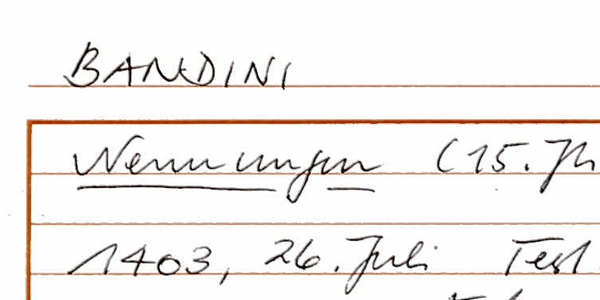 BANDINI
Nennungen (15. Jh
1403, 26. Juli Test